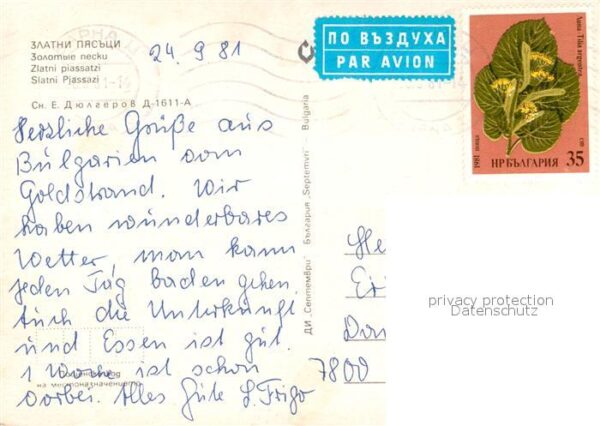 ЗЛАТНИ ПЯСЪЦИ
Золотые пески
Zlatni piassatzi
Slatni Pjassazi
24. 9 81
Сн. Е. Дюлгеров Д-1611-А
Herzliche Grüße aus
Bulgarien vom
Goldstrand. Wir
haben wunderbares
Wetter, man kann
jeden Tag baden gehen.
Auch die Unterkunft
und Essen ist gut.
1 Woche ist schon
на местоназначението
vorbei. Alles Gute
ДИ „Септември" България „Septemvri" Bulgaria
ПО ВЪЗДУХА
PAR AVION
Липа Tilia
1981 поща
НРБЪЛГАРИЯ 35
ст
He
Eri
7800
privacy protection
Datenschutz